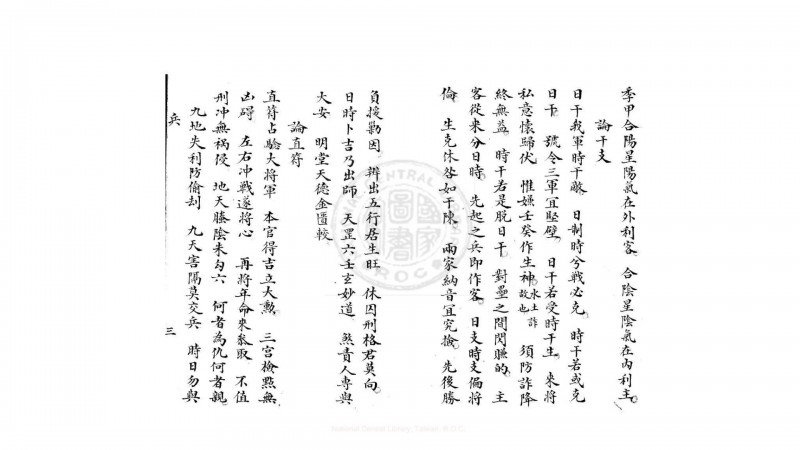 季甲合陽星陽氣在外利客 合陰星陰氣在內利主
論干支
日干我軍時干敵 日制時兮戰必克 時干若或克
日干 號令三軍宜堅壁 日干若受時干生 來將
私意懷歸伏 惟嫌壬癸作生神水土詐故也 須防詐降
終無益 時干若是脫日干 對壘之間閃賺的 主
客從來分日時 先起之兵即作客 日支時支偏將
倫 生克休咎如干陳 兩家納音宜究撿 先後勝
負援勤因 辨出五行居生旺 休囚刑格君莫向
日時卜吉乃出師 天罡六壬玄妙道 煞責人専與
大安 明堂天德金匱較
論直符
直符占驗大將軍 本官得吉立大勳 三宮檢點無
凶碍 左右冲戰遂將心 再將年命來叅取 不值
刑冲無禍侵 地天螣陰朱勾六 何者為仇何者親
九地失利防偷刦 九天害隔莫交兵 時日勿與
兵
三
NATIONAL CENTRAL LIBRARY
R.O.C.
國家圖書館
National Central Library, Taiwan, R.O.C.